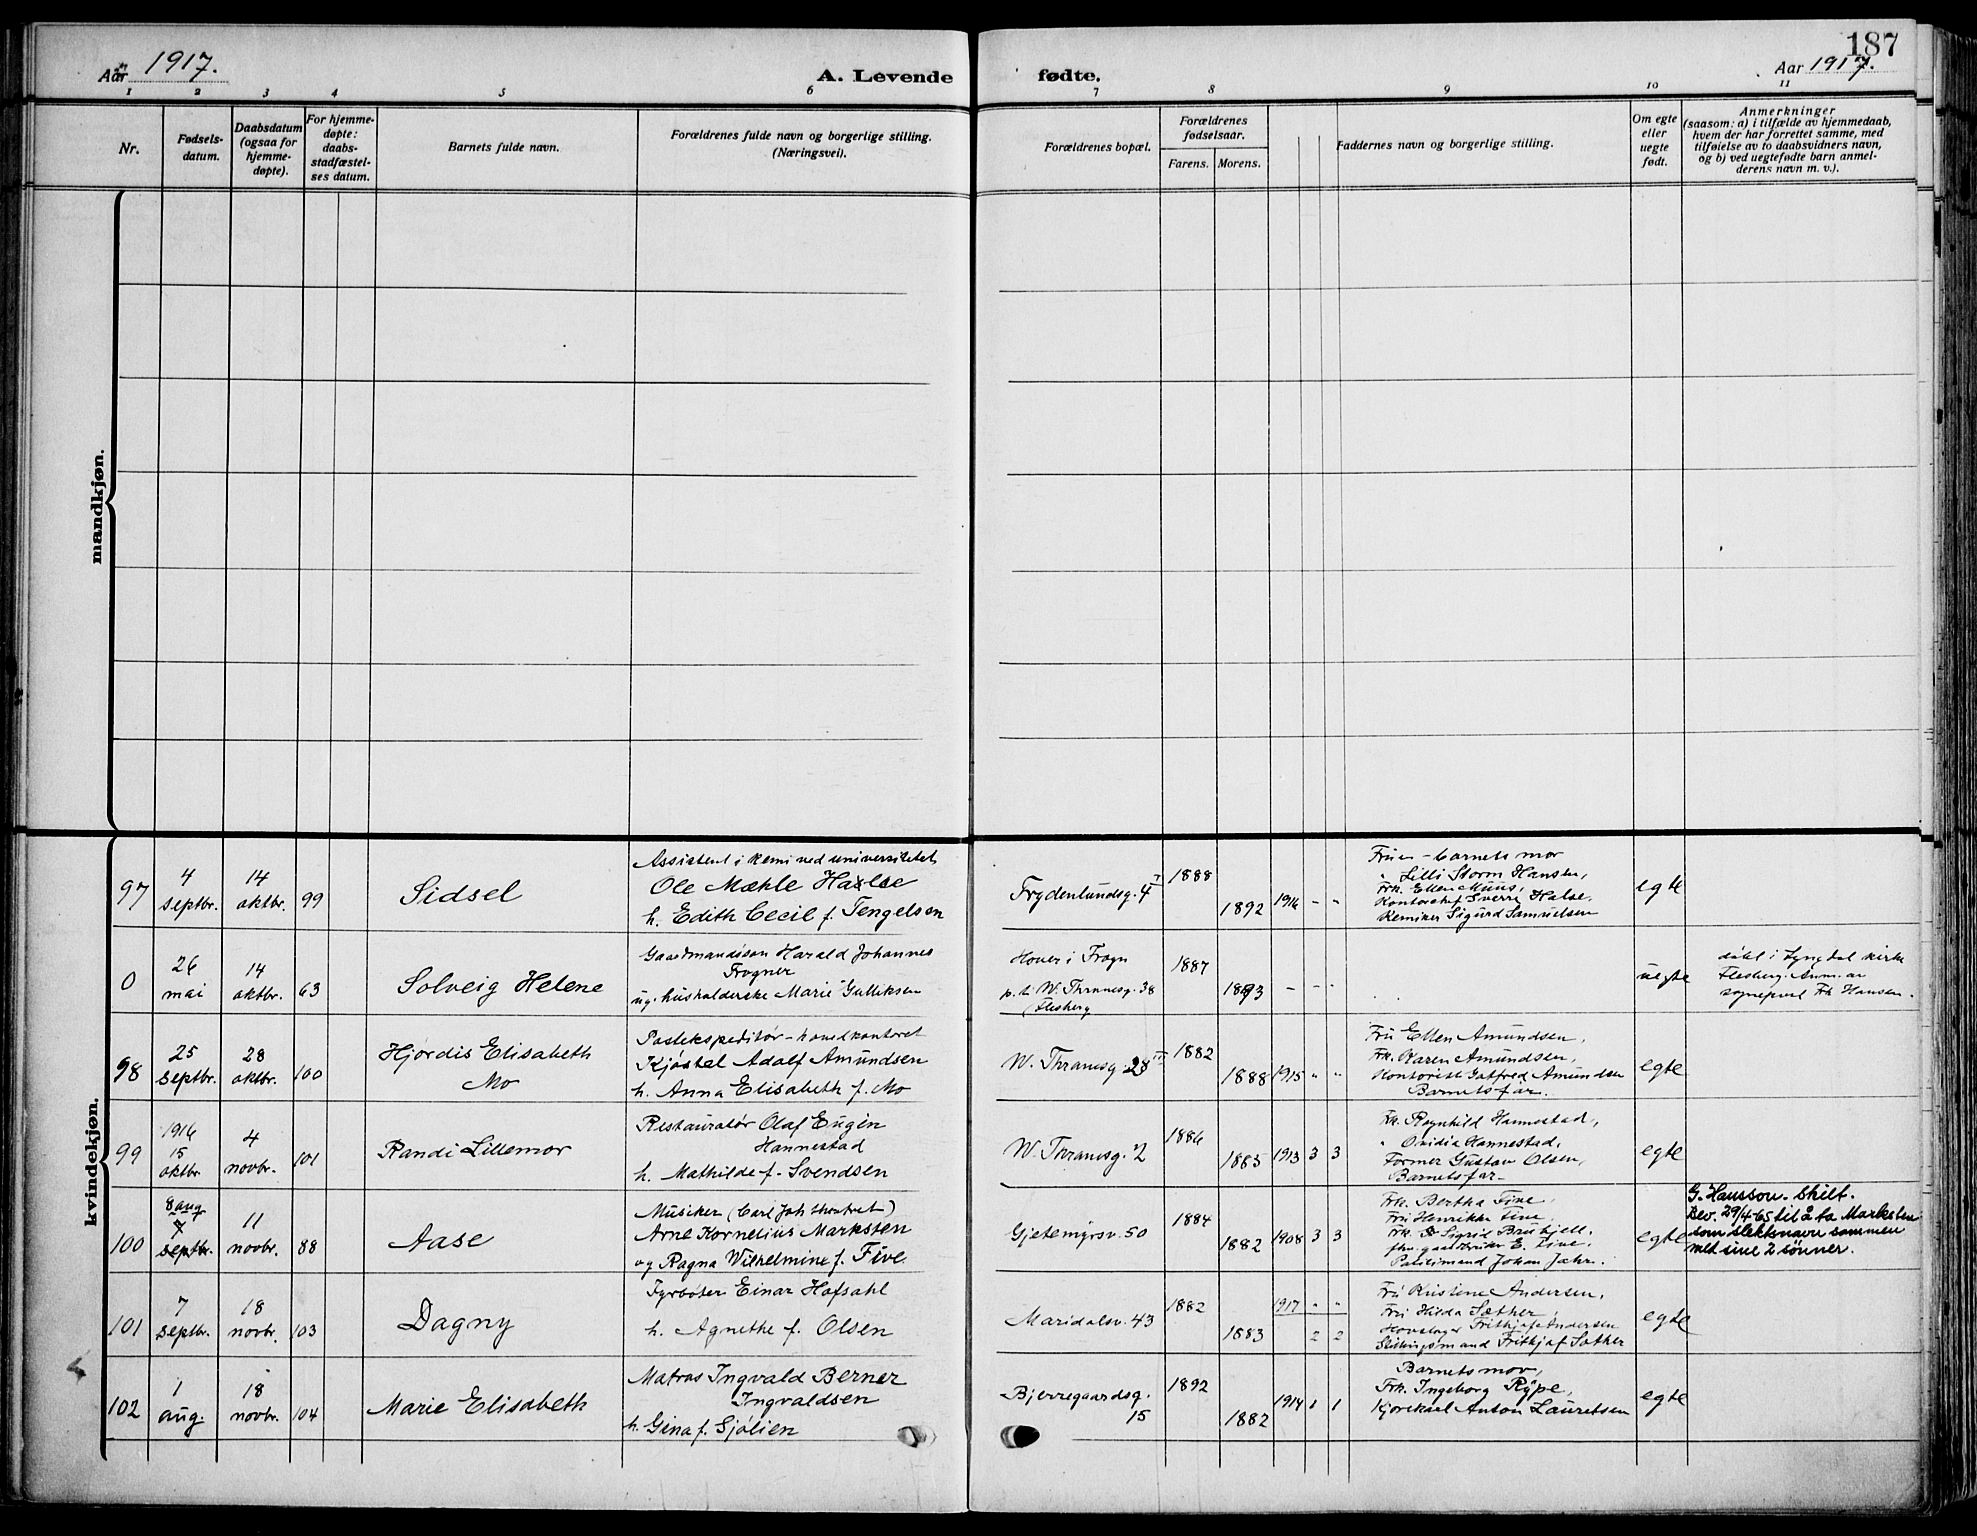 187
Aar 1917.
A. Levende
fødte.
Aar 1917.
1 2 3 4 5 6 7 8 9 10 11
Nr.
Fødsels-
datum.
Daabsdatum
(ogsaa for
hjemme-
døpte).
For hjemme-
døpte:
daabs-
stadfæstel-
ses datum.
Barnets fulde navn.
Forældrenes fulde navn og borgerlige stilling.
(Næringsvei).
Forældrenes bopæl.
Forældrenes
fødselsaar.
Farens. Morens.
Faddernes navn og borgerlige stilling.
Om egte
eller
uegte
født.
Anmerkninger
(saasom: a) i tilfælde av hjemmedaab,
hvem der har forrettet samme, med
tilføielse av to daabsvidners navn,
og b) ved uegtefødte barn anmel-
derens navn m. v.).
mandkjøn.
kvindekjøn.
97
4
septbr.
14
oktbr.
99
Sidsel
Assistent i kemi ved universitetet
Ole Mæhle Halse
h. Edith Cecil f. Tengelsen
Frydenlundsg. 4
1888
1892
1916 - "
Fruen - barnets mor
" Lilli Storm Hansten,
Frk. Ellen Muus,
Kontorchef Sverre Halse.
Kemiker Sigurd Samuelsen
egte
0
26
mai
14
oktbr.
63
Solveig Helene
Gaardmandssøn Harald Johannes
Frogner
ug. husholderske Marie Gulliksen
Houer i Frogn
p. t. W. Thranesg. 38
Flesberg
1887
1893
- - -
uegte
døbt i Lyngdal kirke
Flesberg. Anm. av
sognepræst Fr. Hansen.
98
25
septbr.
28
oktbr.
100
Hjørdis Elisabeth
Mo
Postekspeditør - hovedkontoret
Kjøstel Adolf Amundsen
h. Anna Elisabeth f. Mo
W. Thranesg. 28
1882
1888
1915 " "
Fru Ellen Amundsen,
Frk. Karen Amundsen,
Kontorist Gotfred Amundsen
Barnets far.
egte
99
1916
15
oktbr.
4
novbr.
101
Randi Lillemor
Restauratør Olaf Eugen
Hannestad
h. Mathilde f. Svendsen
W. Thranesg. 2
1886
1885
1913 3 3
Frk. Ragnhild Hannestad,
" Ovidia Hannestad,
Former Gustav Olsen,
Barnets far -
egte
100
8 aug
7
septbr.
11
novbr.
88
Aase
Musiker (Carl Joh. theatret)
Arne Kornelius Marksten
og Ragna Wilhelmine f. Five
Gjetemyrsv. 50
1884
1882
1908 3 3
Frk. Bertha Five,
Fru Henrikke Five,
Frk. Sigrid
E. Five,
Politimand Johan Jahr.
egte
G. Hansson - skilt.
Bev. 29/4-65 til å ta Marksten
som slektsnavn sammen
med sine 2 sønner.
101
7
septbr.
18
novbr.
103
Dagny
Fyrbøter Einar Hofsahl
h. Agnethe f. Olsen
Maridalsv. 43
1882
1883
1917 " "
2 2
Fru Kristine Andersen,
Fru Hilda Sæther,
Hovslager Frithjof Andersen
Frithjof Sæther
egte
102
1
aug.
18
novbr.
104
Marie Elisabeth
Matros Ingvald Berner
Ingvaldsen
h. Gina f. Sjølien
Bjerregaardsg.
15
1892
1882
1914 1 1
Barnets mor,
Frk. Ingeborg Rype,
Kjørekarl Anton Lauritsen
egte